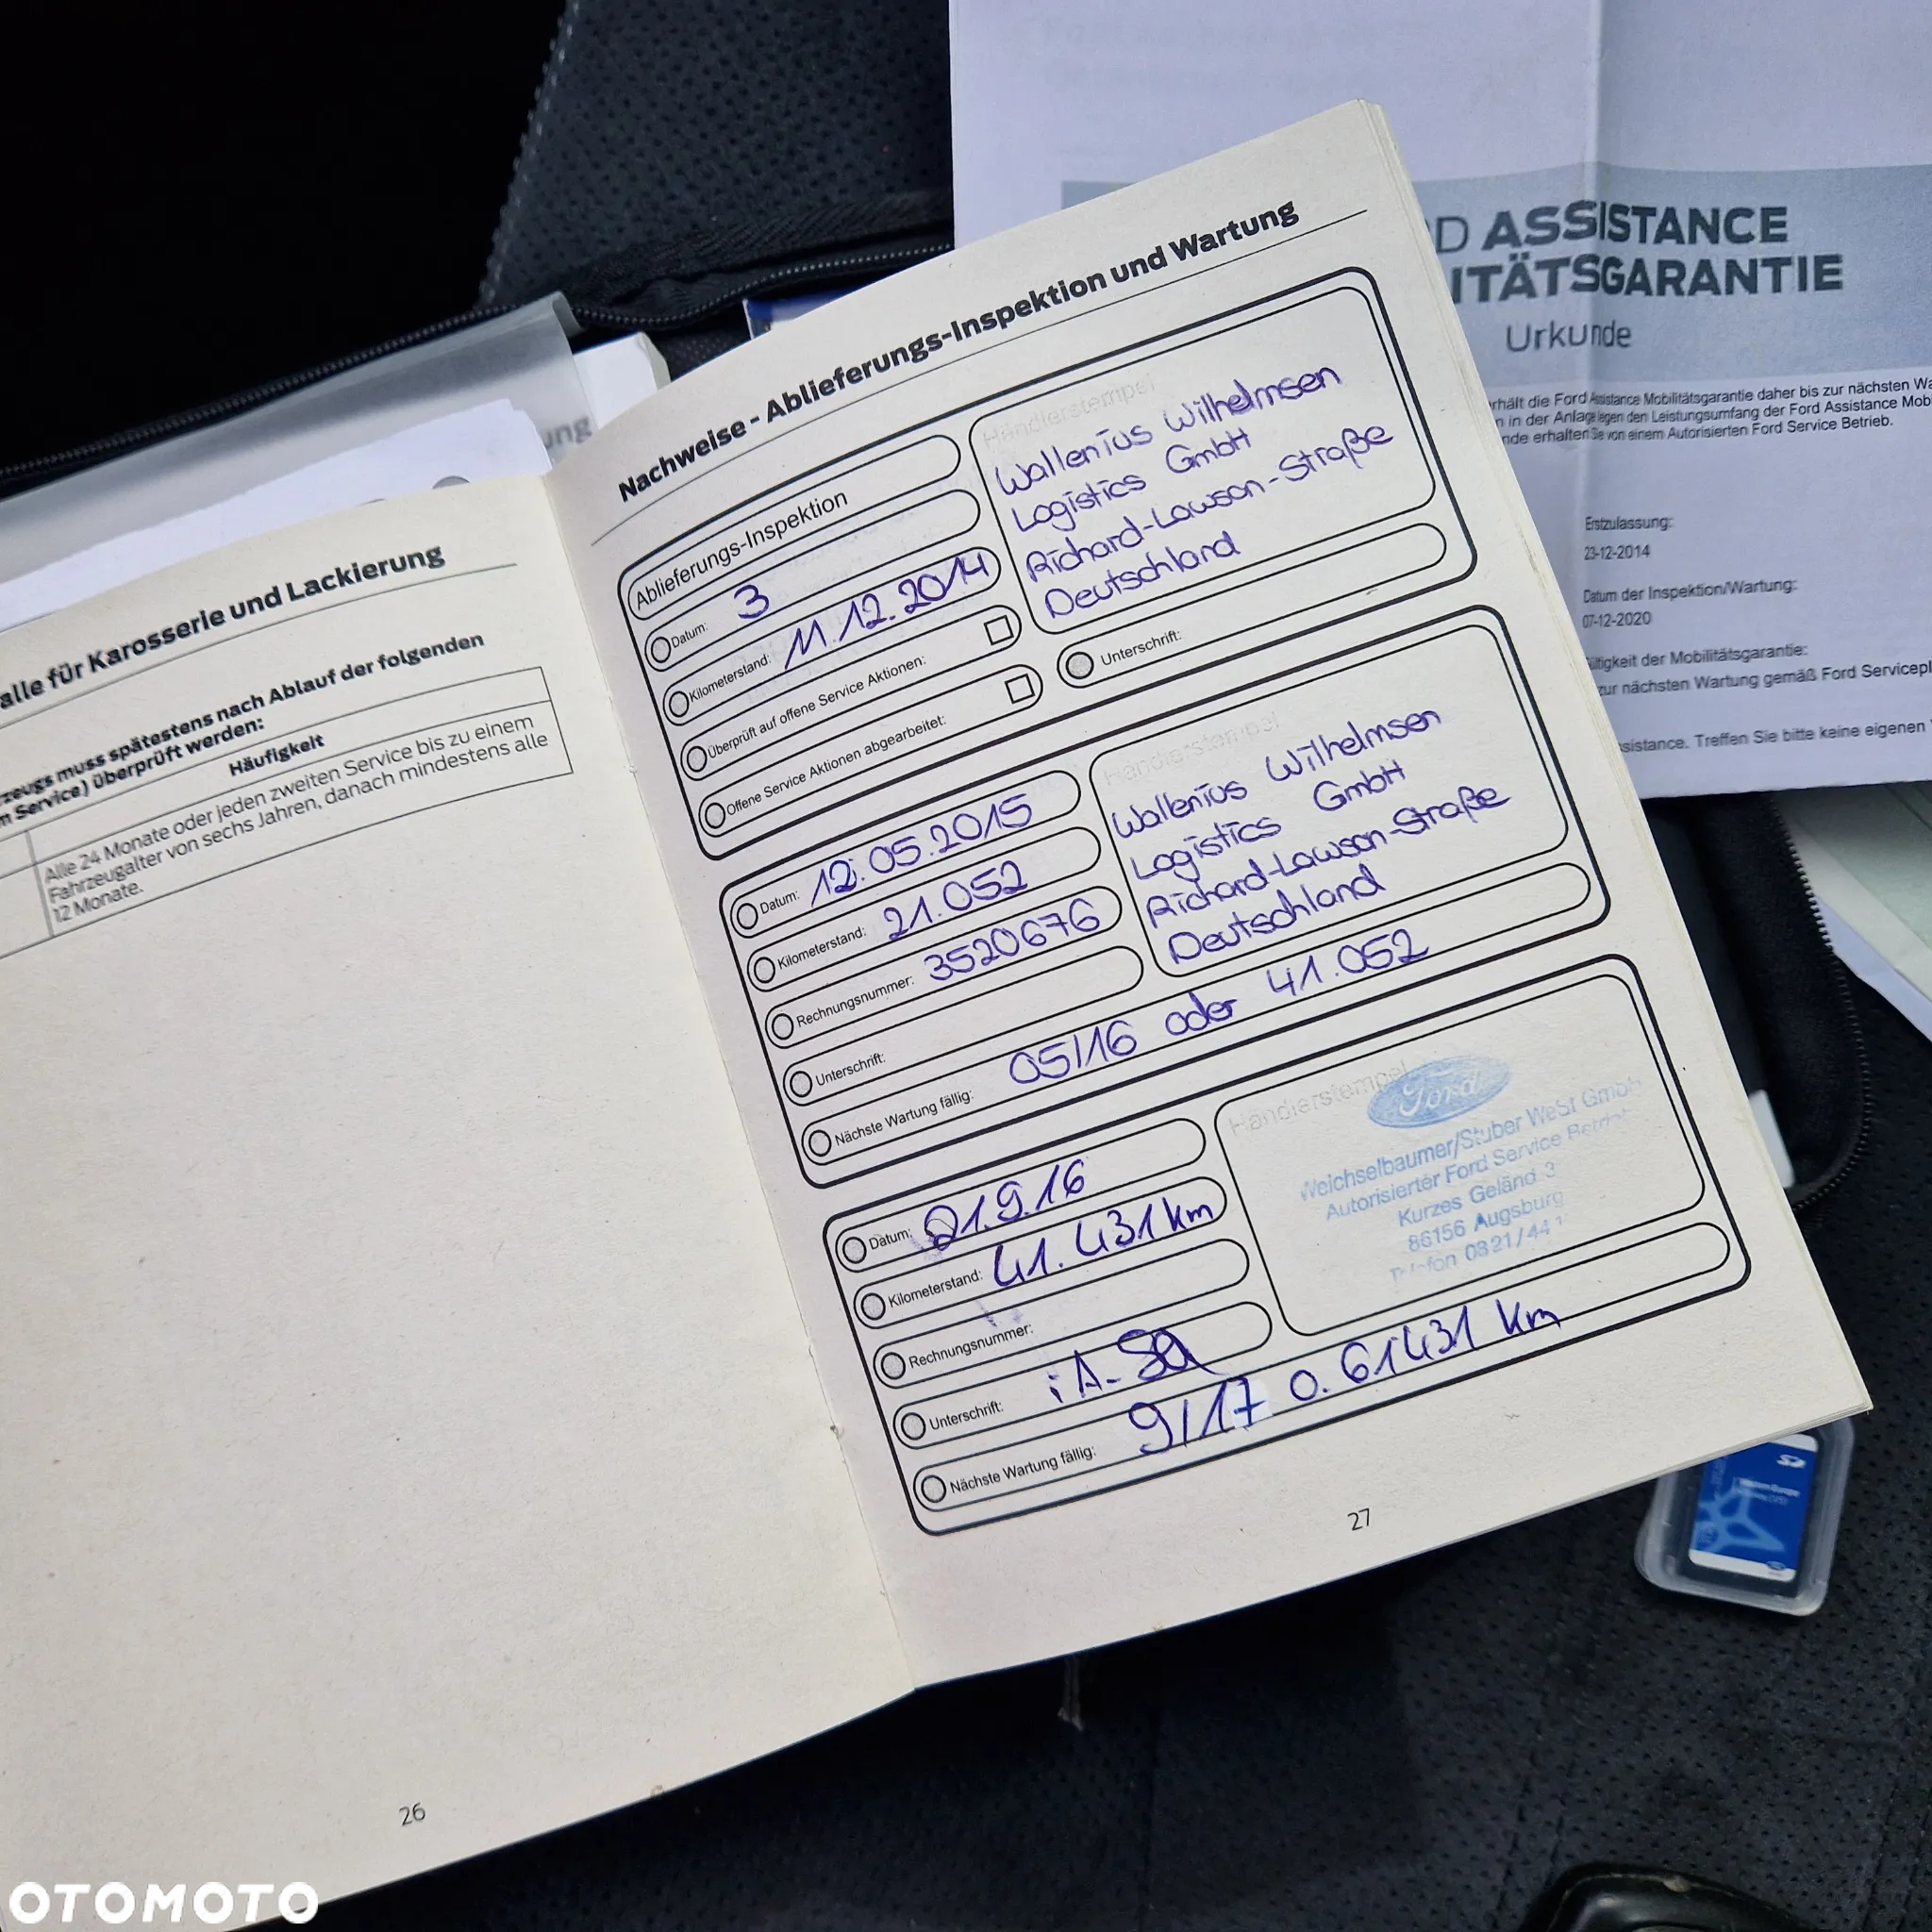 alle für Karosserie und Lackierung
zeugs muss spätestens nach Ablauf der folgenden
Service) überprüft werden:
Häufigkeit
Alle 24 Monate oder jeden zweiten Service bis zu einem
Fahrzeugalter von sechs Jahren, danach mindestens alle
12 Monate.
26
Nachweise - Ablieferungs-Inspektion und Wartung
Ablieferungs-Inspektion
Datum: 3
Kilometerstand: 11.12.2014
Überprüft auf offene Service Aktionen:
Offene Service Aktionen abgearbeitet:
Händlerstempel
Wallenius Wilhelmsen
Logistics GmbH
Richard-Lawson-Straße
Deutschland
Unterschrift:
Datum: 12.05.2015
Kilometerstand: 21.052
Rechnungsnummer: 3520676
Unterschrift:
Nächste Wartung fällig: 05/16 oder 41.052
Händlerstempel
Wallenius Wilhelmsen
Logistics GmbH
Richard-Lawson-Straße
Deutschland
Datum: 21.9.16
Kilometerstand: 41.431 km
Rechnungsnummer:
Unterschrift: i.A.
Nächste Wartung fällig: 9/17 o. 61431 km
Händlerstempel
Ford
Weichselbaumer/Stuber West GmbH
Autorisierter Ford Service Betrieb
Kurzes Geländ 3
86156 Augsburg
Telefon 0821/44
27
D ASSISTANCE
ITÄTSGARANTIE
Urkunde
rhält die Ford Assistance Mobilitätsgarantie daher bis zur nächsten Wa
n in der Anlage legen den Leistungsumfang der Ford Assistance Mobi
nde erhalten Sie von einem Autorisierten Ford Service Betrieb.
Erstzulassung:
23-12-2014
Datum der Inspektion/Wartung:
07-12-2020
ltigkeit der Mobilitätsgarantie:
zur nächsten Wartung gemäß Ford Servicepl
ssistance. Treffen Sie bitte keine eigenen
OTOMOTO